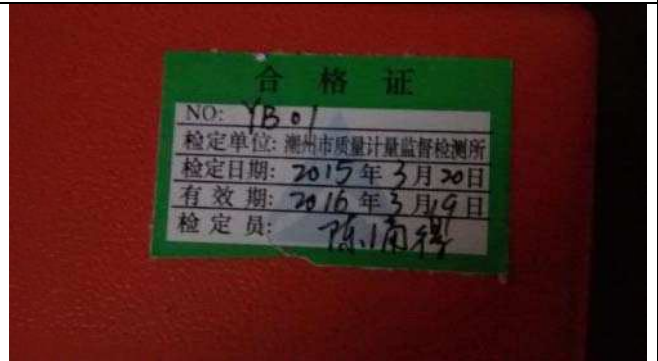 合格证
NO: YB01
检定单位: 潮州市质量计量监督检测所
检定日期: 2015年3月20日
有效期: 2016年3月19日
检定员: 陈